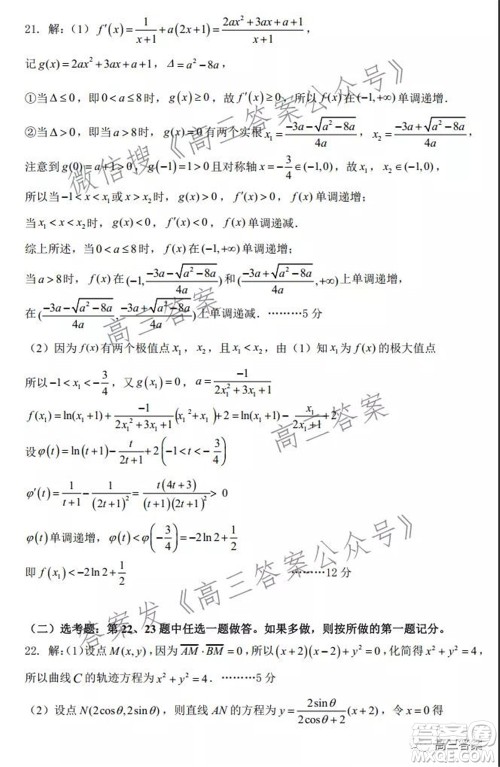 21. 解:(1) f′(x)=1/(x+1)+a(2x+1)=(2ax²+3ax+a+1)/(x+1),
记g(x)=2ax²+3ax+a+1, Δ=a²−8a,
①当Δ≤0,即0<a≤8时, g(x)≥0,故f′(x)≥0,所以f(x)在(−1,+∞)单调递增.
②当Δ>0,即当a>8时, g(x)=0有两个实根x₁=(−3a−√(a²−8a))/4a, x₂=(−3a+√(a²−8a))/4a,
注意到g(0)=a+1>0, g(−1)=1>0且对称轴x=−3/4∈(−1,0),故x₁, x₂∈(−1,0),
所以当−1<x<x₁或x>x₂时, g(x)>0, f′(x)>0, f(x)单调递增;
当x₁<x<x₂时, g(x)<0, f′(x)<0, f(x)单调递减.
综上所述,当0≤a≤8时, f(x)在(−1,+∞)上单调递增;
当a>8时, f(x)在(−1,(−3a−√(a²−8a))/4a)和((−3a+√(a²−8a))/4a,+∞)上单调递增,
在((−3a−√(a²−8a))/4a,(−3a+√(a²−8a))/4a)上单调递减.………5分
(2)因为f(x)有两个极值点x₁, x₂,且x₁<x₂,由(1)知x₁为f(x)的极大值点
所以−1<x₁<−3/4,又g(x₁)=0, a=−1/(2x₁²+3x₁+1)
f(x₁)=ln(x₁+1)+−1/(2x₁²+3x₁+1)(x₁²+x₁)+2=ln(x₁+1)−x₁/(2x₁+1)+2
设φ(t)=ln(t+1)−t/(2t+1)+2(−1<t<−3/4)
φ′(t)=1/(t+1)−1/(2t+1)²=t(4t+3)/((t+1)(2t+1)²)>0
φ(t)单调递增, φ(t)<φ(−3/4)=−2ln2+1/2
即f(x₁)<−2ln2+1/2 ………12分
(二)选考题:第22、23题中任选一题做答。如果多做,则按所做的第一题记分。
22. 解:(1)设点M(x,y),因为AM·BM=0,所以(x+2)(x−2)+y²=0,化简得x²+y²=4,
所以曲线C的轨迹方程为x²+y²=4.………5分
(2)设点N(2cosθ,2sinθ),则直线AN的方程为y=2sinθ/(2cosθ+2)(x+2),令x=0得
微信搜《高三答案公众号》
高三答案
高三答案
答案发《高三答案公众号》
高三答案